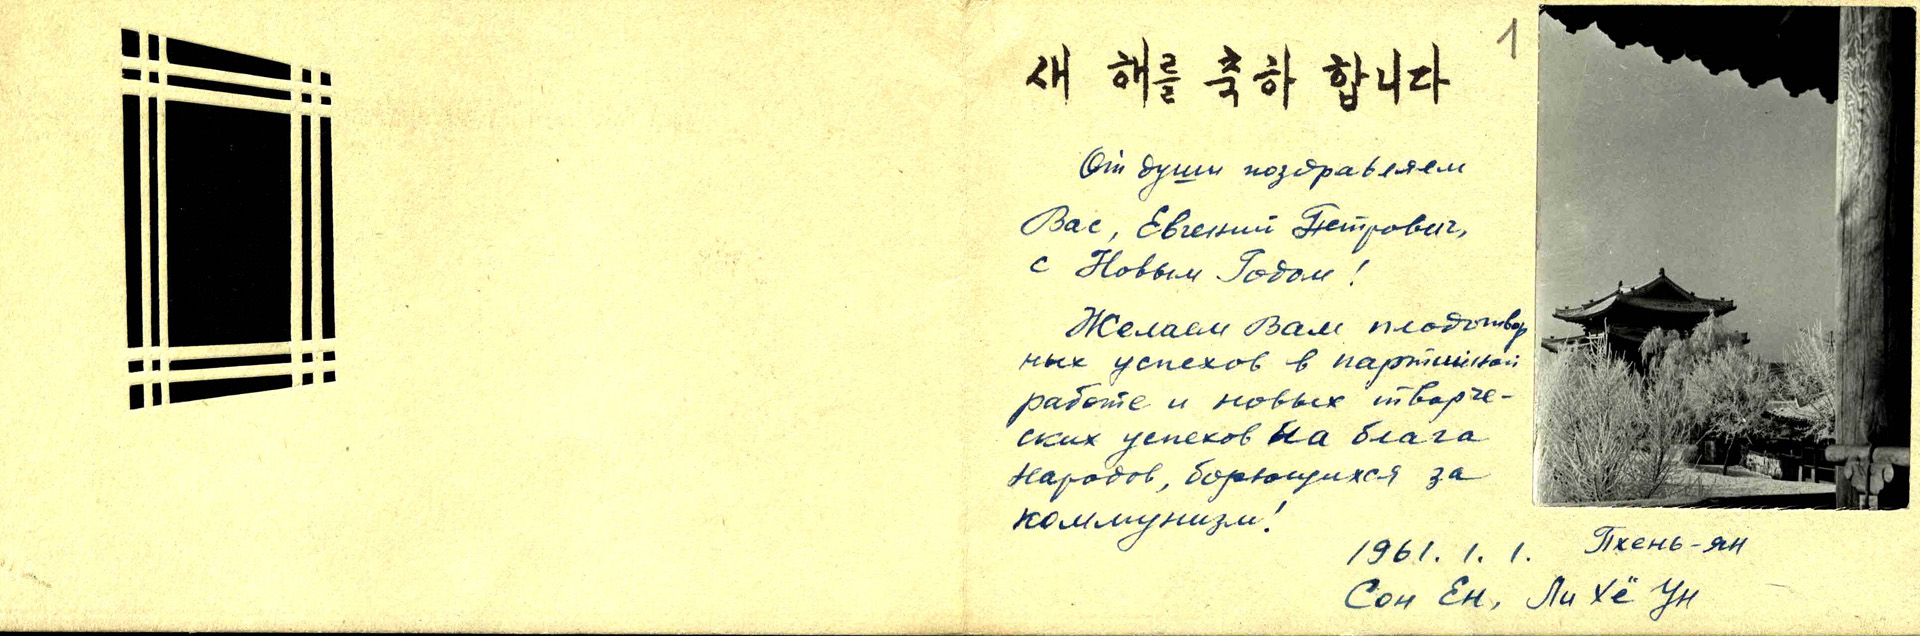 새 해를 축하 합니다
1
От души поздравеляем
Вас, Евгений Петрович,
с Новым Годом!
Желаем Вам плодотвор
ных успехов в партийной
работе и новых творче-
ских успехов на блага
народов, борющихся за
коммунизм!
1961. 1. 1. Пхень-ян
Сон Ен, Ли Хё Ун